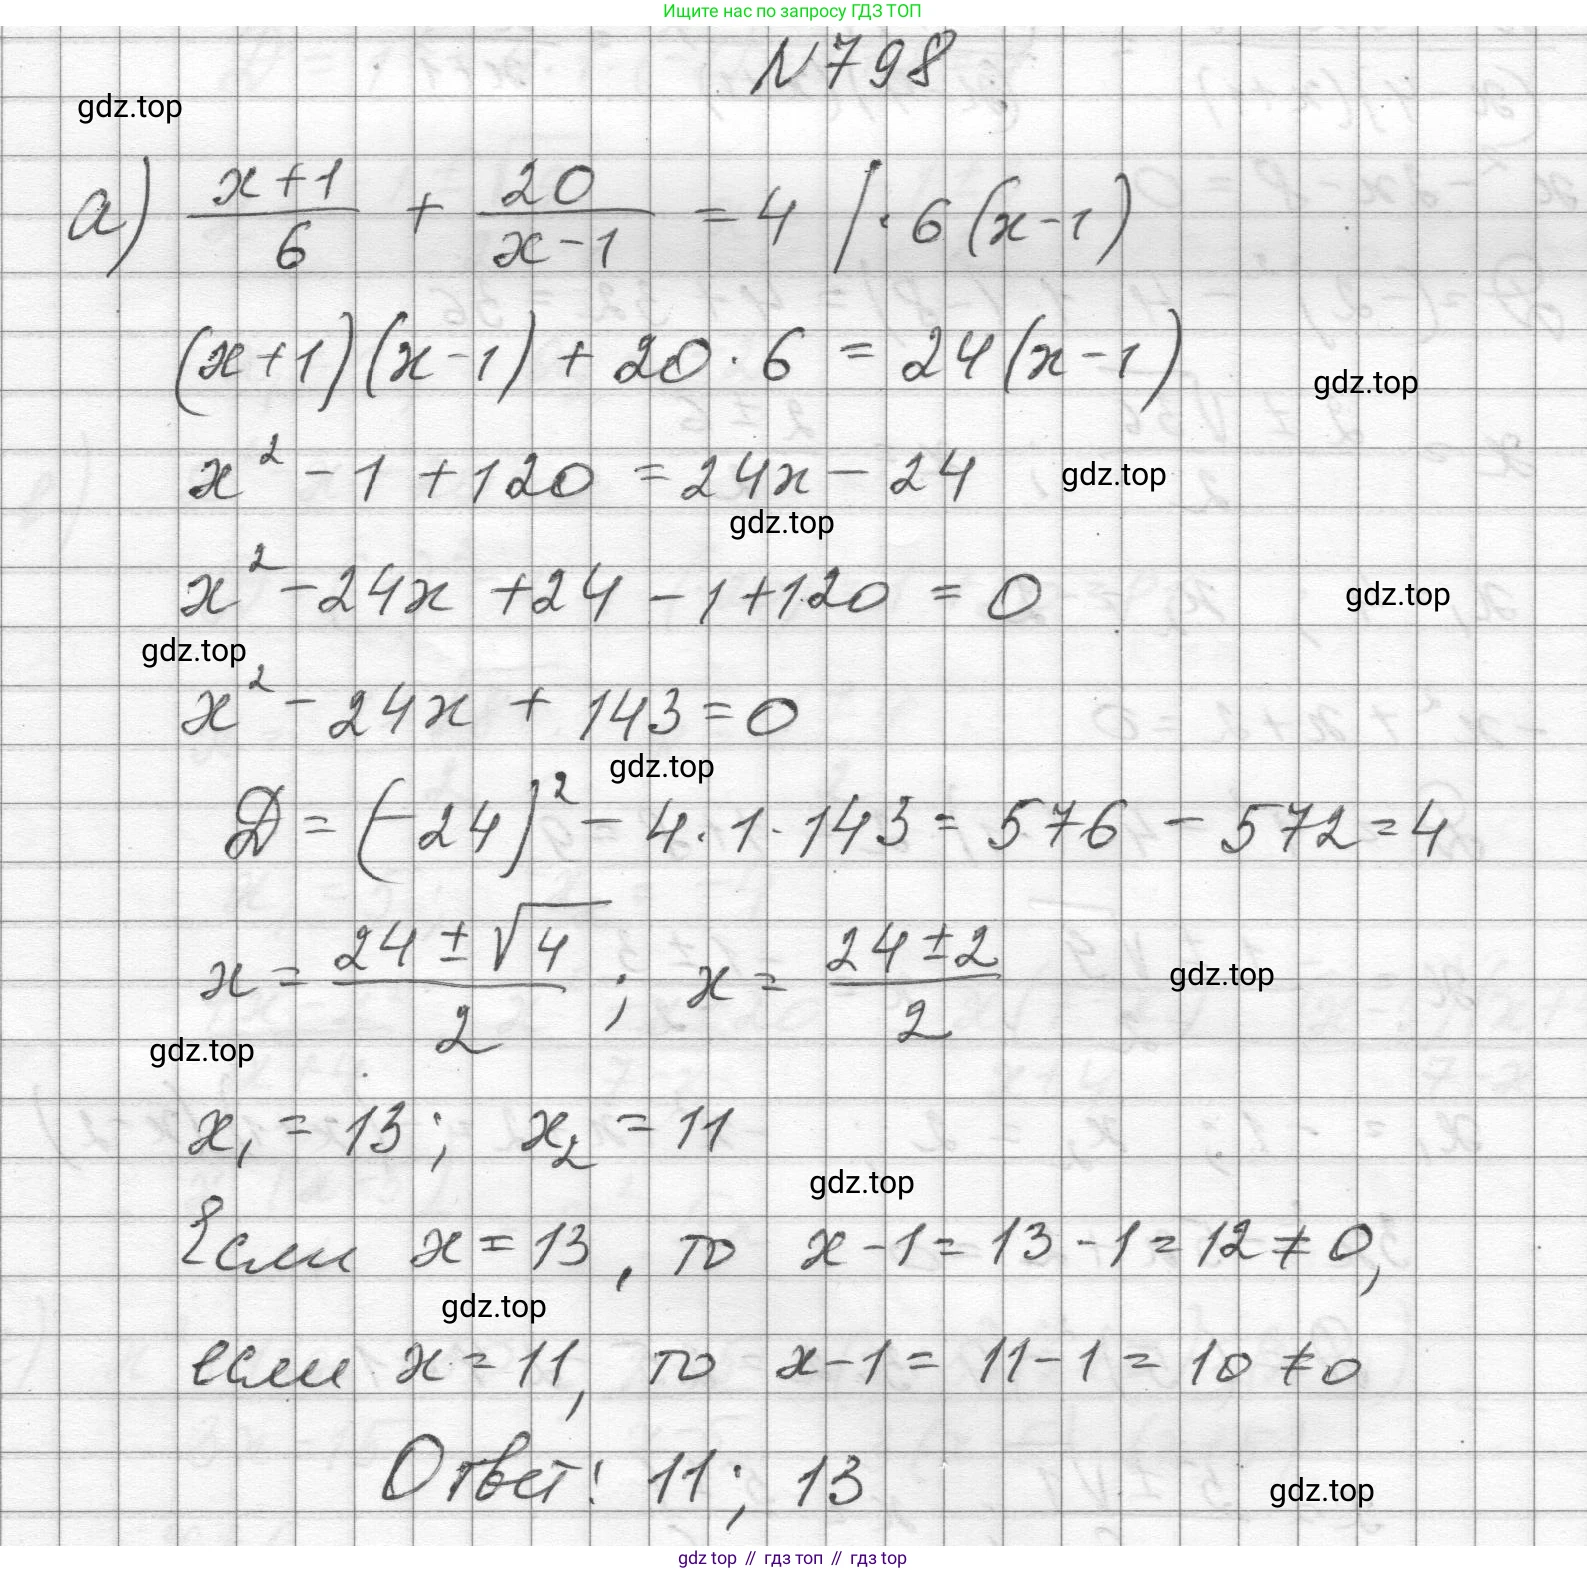 Ищите нас по запросу ГДЗ ТОП
N798
gdz.top
а) (x+1)/6 + 20/(x-1) = 4 | · 6(x-1)
(x+1)(x-1) + 20 · 6 = 24(x-1)
gdz.top
x² - 1 + 120 = 24x - 24
gdz.top
gdz.top
x² - 24x + 24 - 1 + 120 = 0
gdz.top
gdz.top
x² - 24x + 143 = 0
gdz.top
D = (-24)² - 4 · 1 · 143 = 576 - 572 = 4
x = (24 ± √4)/2 ; x = (24 ± 2)/2
gdz.top
gdz.top
x₁ = 13; x₂ = 11
gdz.top
Если x = 13, то x - 1 = 13 - 1 = 12 ≠ 0,
gdz.top
если x = 11, то x - 1 = 11 - 1 = 10 ≠ 0
Ответ: 11; 13
gdz.top
gdz top // гдз топ // гдз top